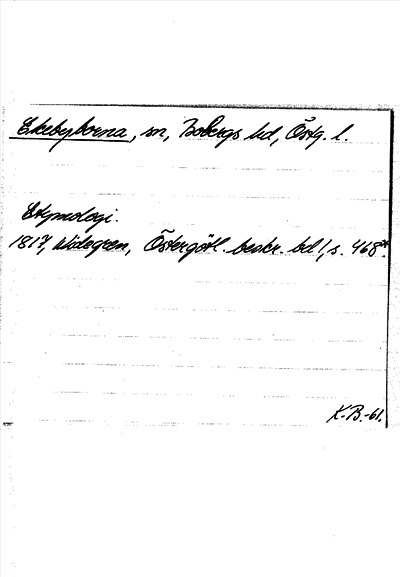 Ekebyborna, sn, Bobergs hd, Östg. l.
Etymologi.
1817, Widegren, Östergötl. beskr. bd 1, s. 468
K.B.-61.